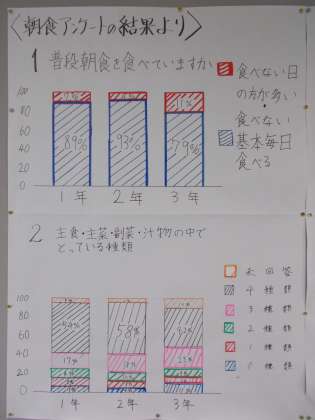 〈朝食アンケートの結果より〉
1 普段朝食を食べていますか
食べない日
の方が多い
食べない
基本毎日
食べる
100
80
60
40
20
0
89%
93%
79%
1年
2年
3年
2 主食・主菜・副菜・汁物の中で
とっている種類
未回答
4種類
3種類
2種類
1種類
0種類
100
80
60
40
20
0
58%
17%
1年
2年
3年